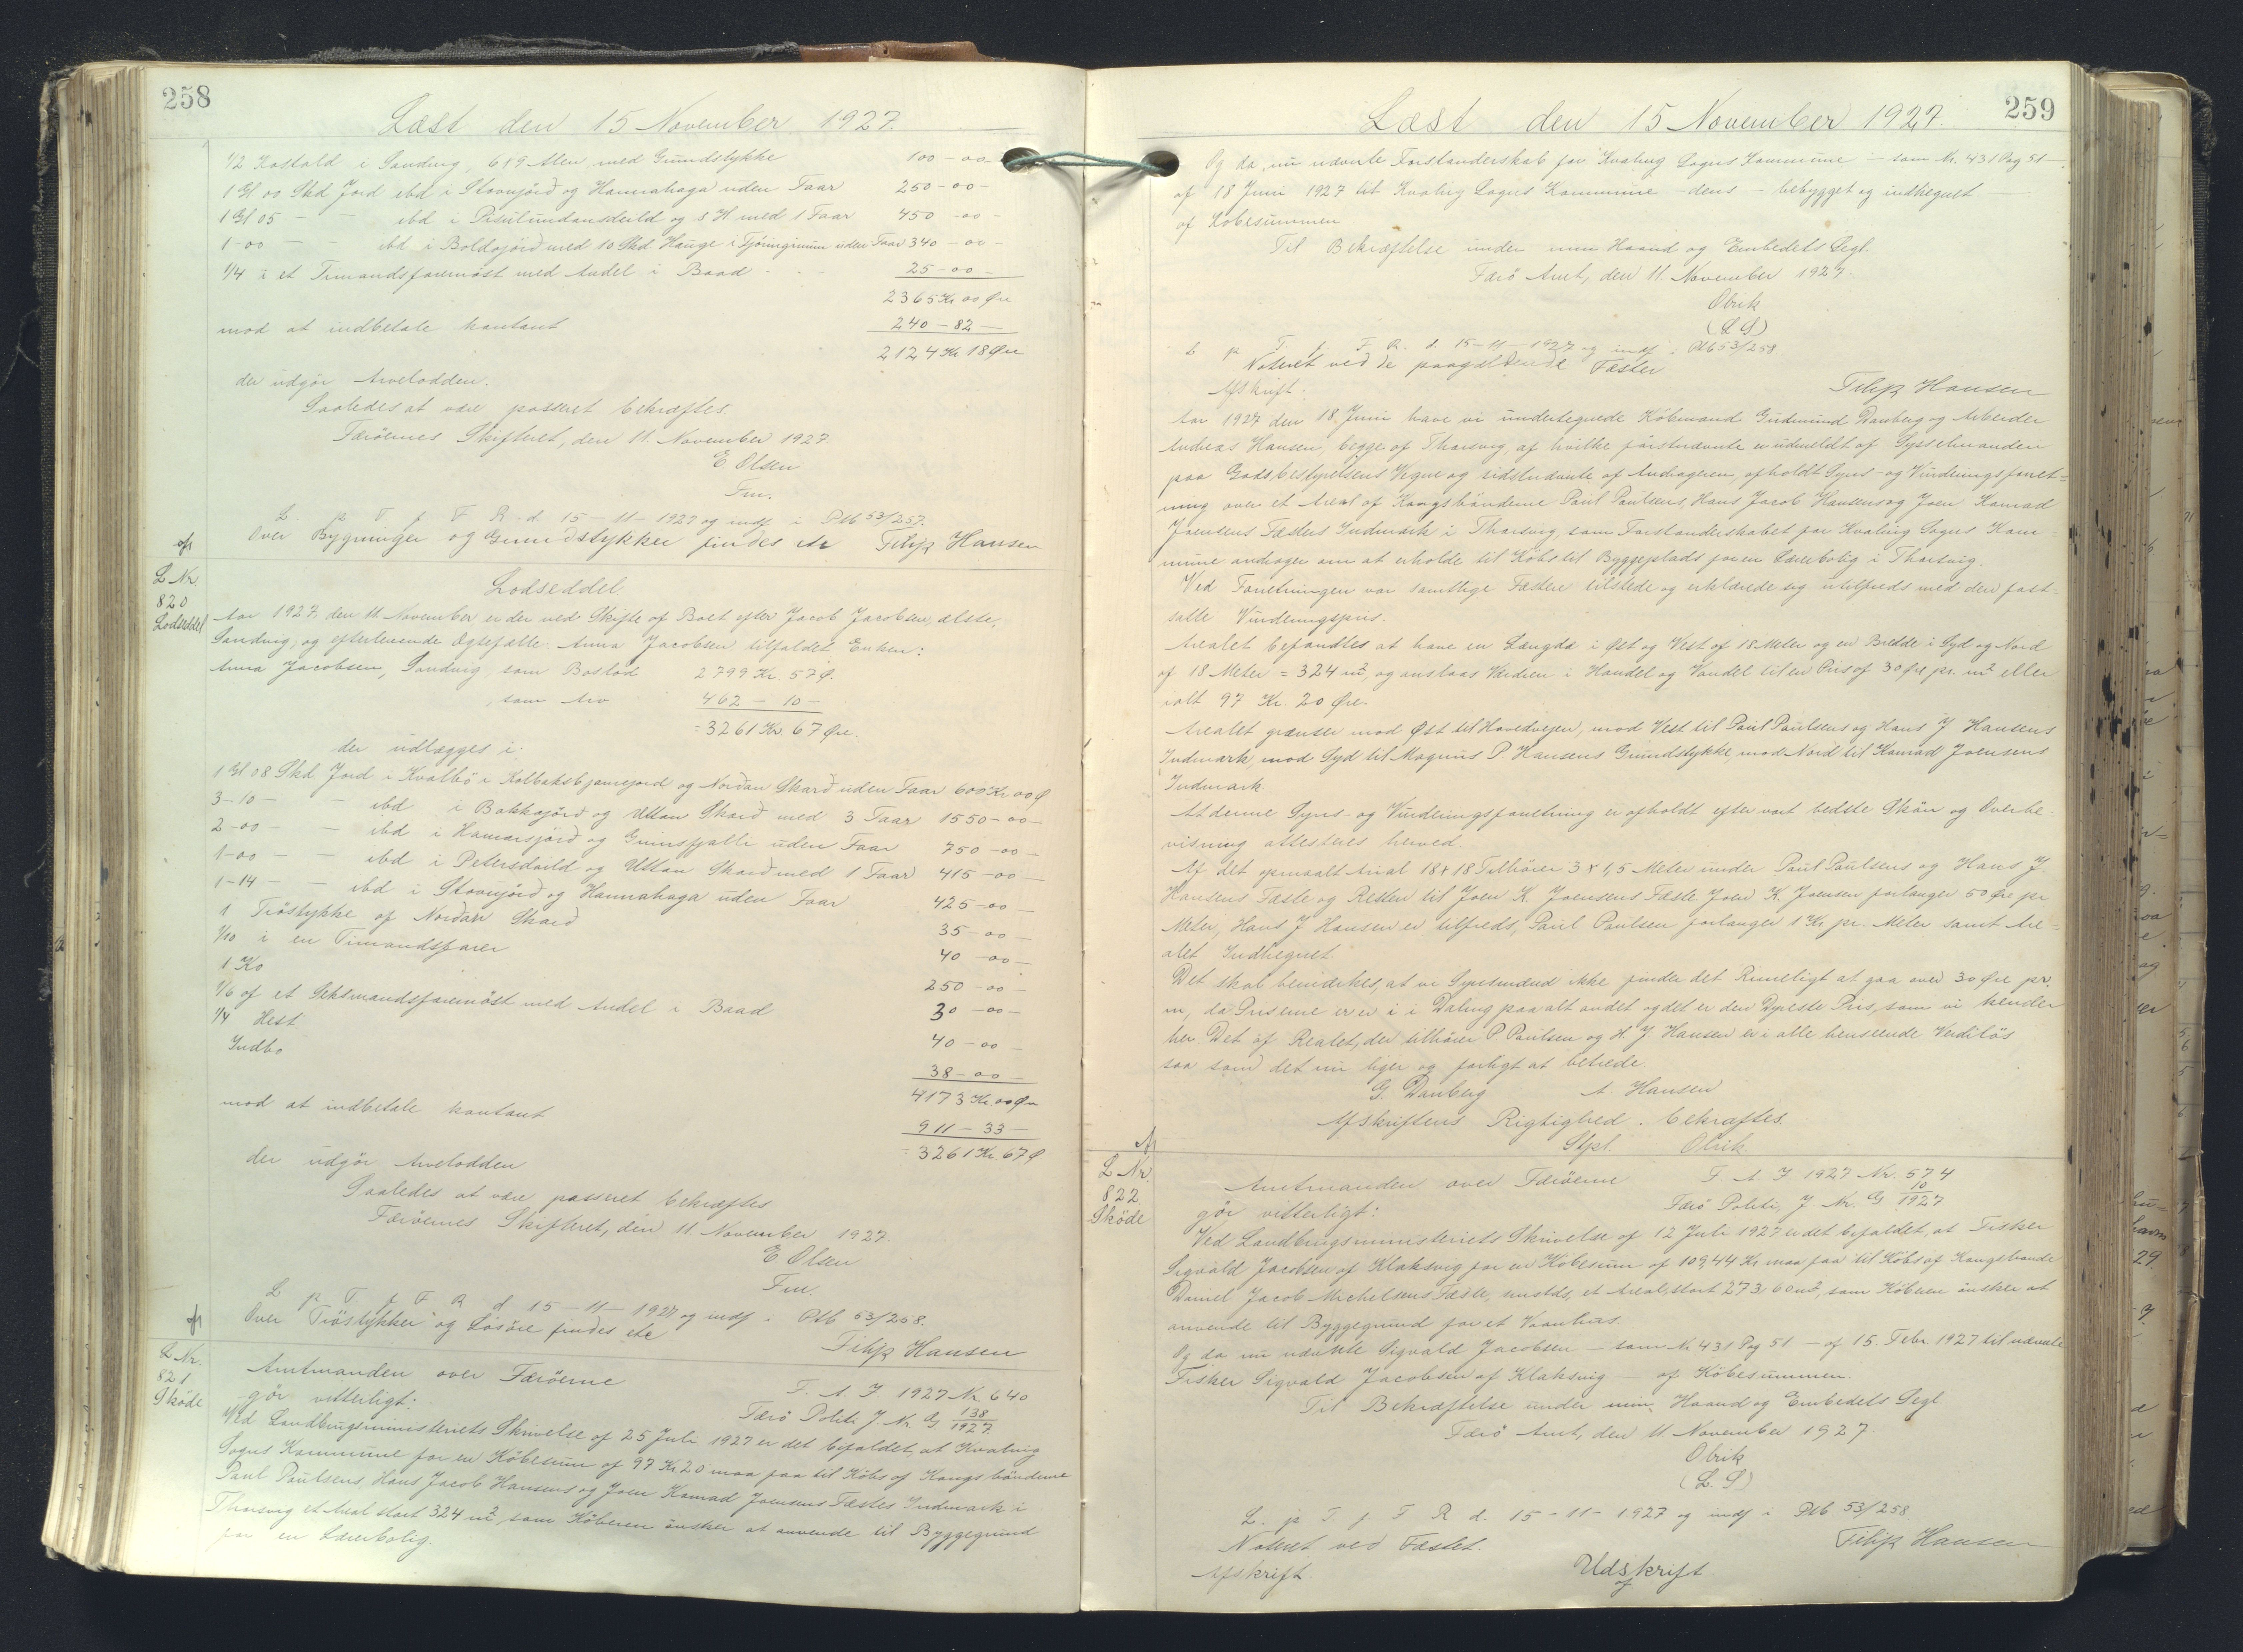 258
Læst den 15 November 1927.
1/2 Kostald i Sandvig, 689 Alen, med Grundstykke 100-00-
1 Gl 00 Skd Jord ibd i Stovujörd og Hannahaga uden Faar 250-00-
1 Gl 05 - - ibd i og 8 H med 1 Faar 450-00-
1-00 - - ibd i Boldajörd med 10 Skd Hauge i uden Faar 340-00-
1/4 i et Timandsfarnöst med Andel i Baad 25-00-
2365 Kr 00 Øre
mod at indbetale kontant 240-82-
2124 Kr 18 Øre
der udgör Arvelodden.
Saaledes at være passeret bekræftes.
Færöernes Skifteret, den 11. November 1927
E. Olsen
Fm.
L. p T. f F R d 15-11-1927 og indf i Ptb 53/257.
Over Bygninger og Grundstykker findes ete Filip Hansen
afs
L Nr
820
Lodseddel
Lodseddel.
Aar 1927 den 11 November er der ved Skifte af Boet efter Jacob Jacobsen, ælste,
Sandvig, og efterlevende Ægtefælle Anna Jacobsen tilfaldet Enken:
Anna Jacobsen, Sandvig som Boslod 2799 Kr. 57 Ø.
, som Arv 462-10-
=3261 Kr. 67 Øre.
der udlægges i:
1 Gl 08 Skd Jord i Kvalbö i Kolbaksbjarnejord og Nordan Skard uden Faar 600 Kr 00 Ø
3-10- - ibd i Bakkajörd og Uttan Skard med 3 Faar 1550-00-
2-00- - ibd i Hamarsjörd og Grimsfjalli uden Faar 750-00-
1-00- - ibd i Petersdeild og Uttan Skard med 1 Faar 415-00-
1-14- - ibd i Stovujörd og Hannahaga uden Faar 425-00-
1 Tröstykke af Nordan Skard 35-00-
1/10 i en Timandsfarer 40-00-
1 Ko 250-00-
1/6 af et Seksmandsfarnöst med Andel i Baad 30-00-
1/4 Hest 40-00-
Indbo 38-00-
4173 Kr 00 Øre
mod at indbetale kontant 911-33-
=3261 Kr. 67 Ø
der udgör Arvelodden
Saaledes at være passeret bekræftes
Færöernes Skifteret, den 11. November 1927.
E Olsen
Fm.
L p T. f F R d 15-11-1927 og indf i Ptb 53/258.
Over Tröstykker og Lösöre findes ete
Filip Hansen
afs
L Nr.
821
Sköde
Amtmanden over Færöerne F. A. J 1927 Nr. 640
gör vitterligt: Færö Politi J. Nr. G 138/1927.
Ved Landbrugsministeriets Skrivelse af 25 Juli 1927 er det bifaldet, at Kvalvig
Sogns Kommune for en Köbesum af 97 Kr 20 maa faa til Köbs af Kongsbönderne
Paul Poulsens, Hans Jacob Hansens og Joen Konrad Joensens Fæstes Indmark i
Thorsvig et Areal stort 324 m², som Köberen önsker at anvende til Byggegrund
for en Lærerbolig.
259
Læst den 15 November 1927.
Og da nu nævnte Forstanderskab for Kvalvig Sogns Kommune - som Nr. 431 Pag 51 -
af 18 Juni 1927 til Kvalvig Sogns Kommune - dens - bebygget og indhegnet
af Köbesummen
Til Bekræftelse under min Haand og Embedets Segl.
Færö Amt, den 11. November 1927.
Olrik
(L S)
L p T. f F. R. d. 15-11-1927 og indf i Ptb 53/258
Noteret ved de paagældende Fæster
Filip Hansen
Afskrift.
Aar 1927 den 18 Juni have vi undertegnede Köbmand Gudmund Danberg og Arbeider
Andreas Hansen, begge af Thorsvig, af hvilke förstnævnte er udmeldt af Sysselmanden
paa Godsbestyrelsens Vegne og sidstnævnte af Andrageren, afholdt Syns- og Vurderingsforret-
ning over et Areal af Kongsbönderne Paul Poulsens, Hans Jacob Hansens og Joen Konrad
Joensens Fæstes Indmark i Thorsvig, som Forstanderskabet for Kvalvig Sogns Kom-
mune andrager om at erholde til Köbs til Byggeplads for en Lærerbolig i Thorsvig.
Ved Forretningen var samtlige Fæstere tilstede og erklærede sig utilfreds med den fast-
satte Vurderingspris.
Arealet befandtes at have en Længde i Øst og Vest af 18 Meter og en Bredde i Syd og Nord
af 18 Meter = 324 m², og ansloas Værdien i Handel og Vandel til en Pris af 30 Øre pr. m² eller
ialt 97 Kr. 20 Øre.
Arealet grænser mod Øst til Hovedvejen, mod Vest til Paul Paulsens og Hans J Hansens
Indmark, mod Syd til Magnus P Hansens Grundstykke, mod Nord til Konrad Joensens
Indmark.
At denne Syns- og Vurderingsforretning er afholdt efter vort bedste Skön og Overbe-
visning attesteres herved.
Af det opmaalt Areal 18x18 Tilhörer 3 x 1,5 Meter under Paul Paulsens og Hans J
Hansens Fæste og Resten til Joen K. Joensens Fæste. Joen K. Joensen forlanger 50 Øre pr
Meter, Hans J Hansen er tilfreds, Paul Paulsen forlanger 1 Kr pr. Meter samt Are-
alet Indhegnet.
Det skal bemærkes, at vi Synsmænd ikke finder det Rimeligt at gaa over 30 Øre pr.
m, da Priserne er i i Daling paa alt andet og det er den Dyreste Pris, som vi kender
her. Det af Realet, der tilhörer P. Paulsen og H J Hansen er i alle henseende Verdilös
saa som det nu liger og farligt at betrede
G. Danberg A. Hansen
Afskriftens Rigtighed bekræftes.
Skpt. Olrik.
afs
L Nr.
822
Sköde
Amtmanden over Færöerne F. A. J. 1927 Nr. 574
gör vitterligt: Færö Politi, J. Nr. G 10/1927
Ved Landbrugsministeriets Skrivelse af 12 Juli 1927 er det bifaldet, at Fisker
Sigvald Jacobsen af Klaksvig for en Köbesum af 109,44 Kr maa faa til Köbs af Kongsbonde
Daniel Jacob Michelsens Fæste, smstds, et Areal, stort 273,60 m², som Köberen önsker at
anvende til Byggegrund for et Vaanhus.
Og da nu nævnte Sigvald Jacobsen - som Nr 431 Pag 51 - af 15. Febr 1927 til nævnte
Fisker Sigvald Jacobsen af Klaksvig - af Köbesummen.
Til Bekræftelse under min Haand og Embedets Segl.
Færö Amt, den 11 November 1927.
Olrik
(L. S)
L. p T f F R d. 15-11-1927 og indf i Ptb 53/258.
Noteret ved Fæstet. Filip Hansen
Afskrift. Udskrift
af